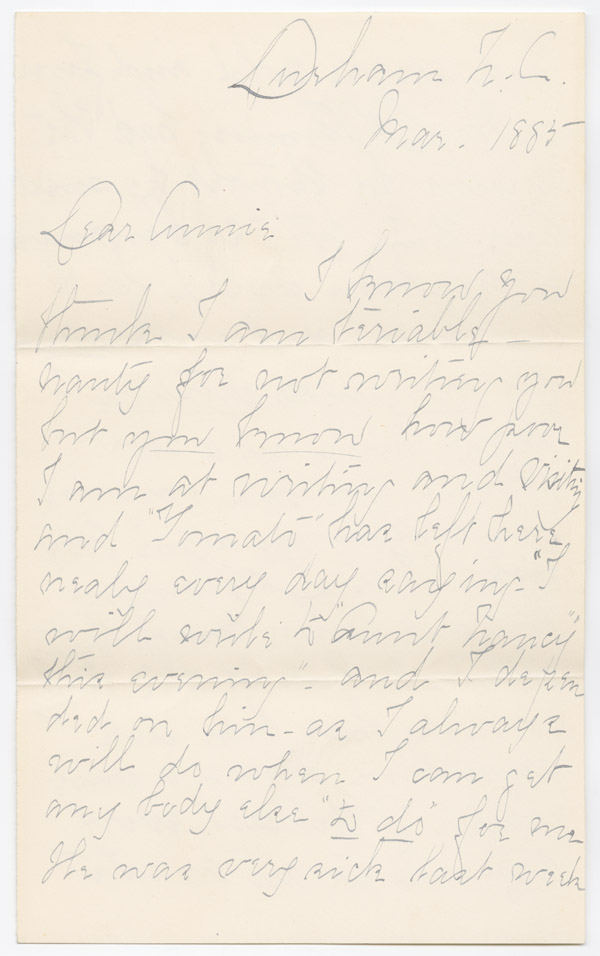 Durham N.C.
Mar. 1885
Dear Annie
I know you
think I am teriably
nauty for not writing you
but you know how poor
I am at writing and visiting
and "Tomato" has left here
nealy every day saying- "I
will write to "Aunt Nancy"
this evening"- and I depen
ded on him- as I always
will do when I can get
any body else "to do" for me
He was very sick last week